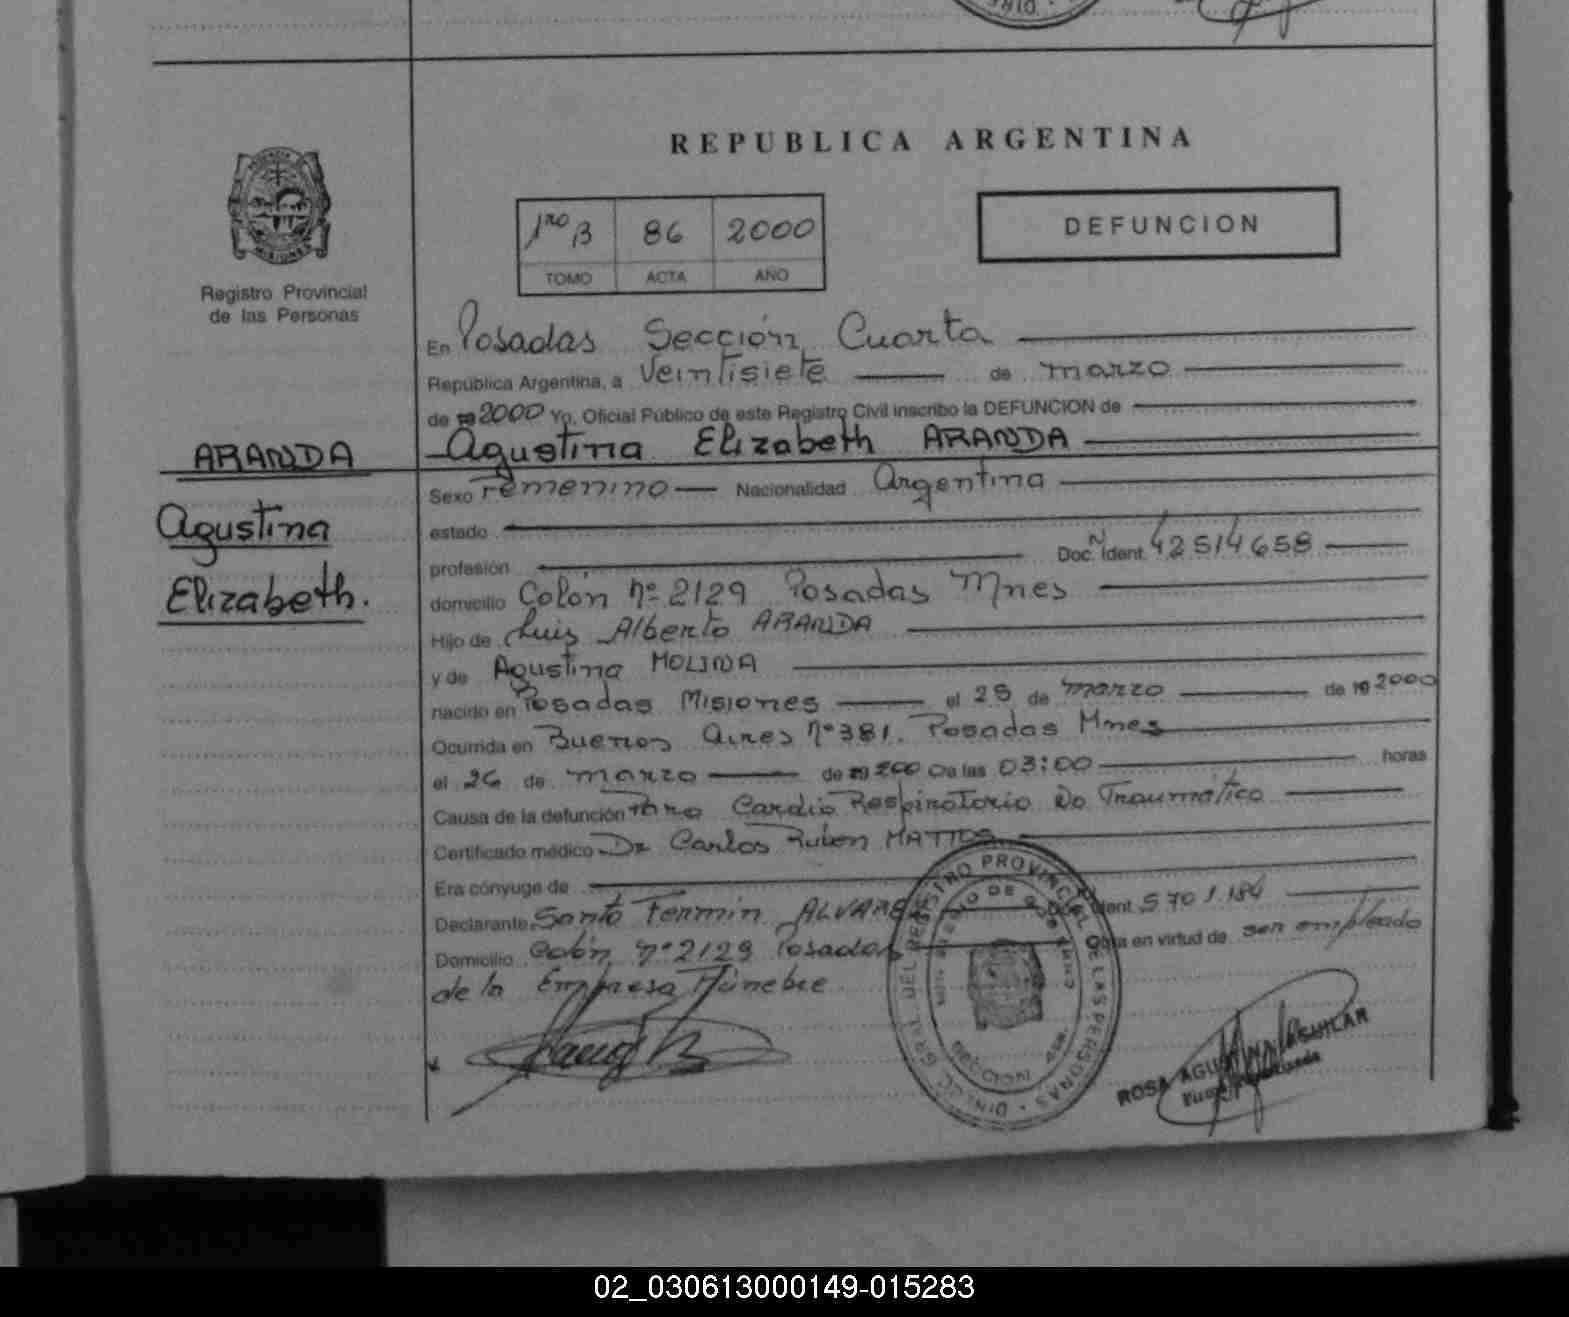 REPUBLICA ARGENTINA
1ro B 86 2000
TOMO ACTA AÑO
DEFUNCION
Registro Provincial
de las Personas
En Posadas Sección Cuarta
República Argentina, a Veintisiete de marzo
de 2000 Yo, Oficial Público de este Registro Civil inscribo la DEFUNCION de
Agustina Elizabeth ARANDA
ARANDA
Agustina
Elizabeth.
Sexo Femenino Nacionalidad Argentina
estado
profesión Doc. Ident. 42514658
domicilio Colón nº 2129 Posadas Mnes
Hijo de Luis Alberto ARANDA
y de Agustina MOLINA
nacido en Posadas Misiones el 25 de marzo de 19 2000
Ocurrida en Buenos Aires Nº 381. Posadas Mnes
el 26 de marzo de 2000 a las 03:00 horas
Causa de la defunción Paro Cardio Respiratorio No Traumático
Certificado médico Dr Carlos Ruben MATTOS
Era cónyuge de
Declarante Santo Fermin ALVAREZ Ident. 5701184
Domicilio Colón nº 2129 Posadas Obra en virtud de ser empleado
de la Empresa Fúnebre
REGISTRO PROVINCIAL DE LAS PERSONAS
ROSA
02_030613000149-015283